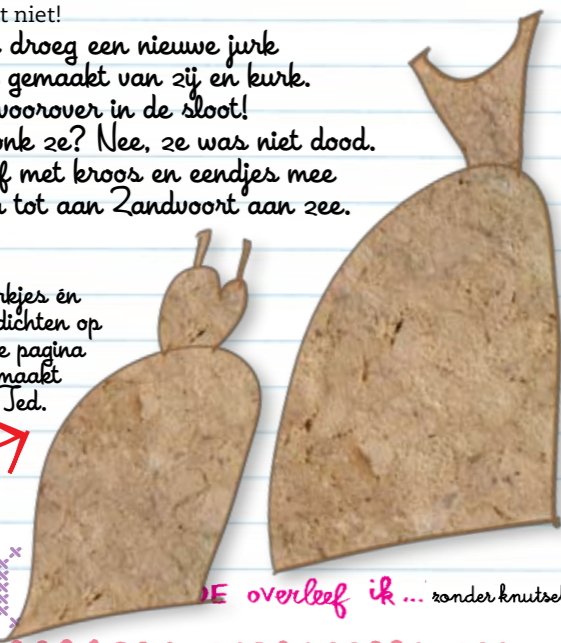 t niet!
droeg een nieuwe jurk
gemaakt van zij en kurk.
voorover in de sloot!
onk ze? Nee, ze was niet dood.
f met kroos en eendjes mee
tot aan Zandvoort aan zee.
rkjes én
dichten op
e pagina
maakt
Ted.
OE overleef ik... zonder knutsel